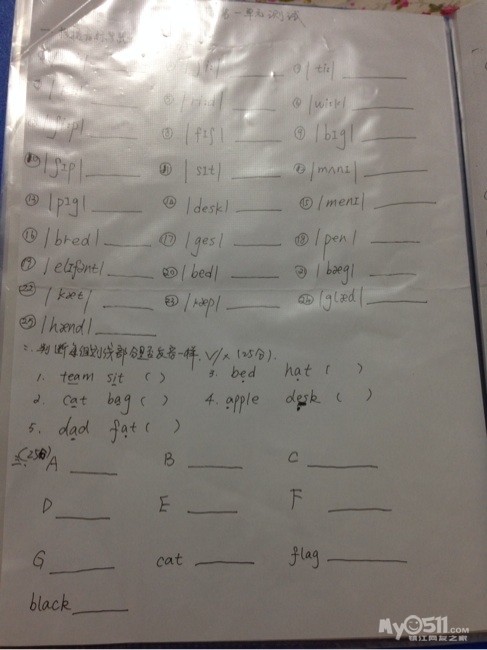 第一单元测试
③ /tiː/
⑥ /wiːk/
⑧ /fɪʃ/ ⑨ /bɪg/
⑩ /ʃɪp/ ⑪ /sɪt/ ⑫ /mʌnɪ/
⑬ /pɪg/ ⑭ /desk/ ⑮ /menɪ/
⑯ /bred/ ⑰ /ges/ ⑱ /pen/
⑲ /elɪfənt/ ⑳ /bed/ /bæg/
/kæt/ /ræp/ /glæd/
/hænd/
二. 判断每组划线部分是否发音一样, √/× (25分).
1. team sit ( ) 3. bed hat ( )
2. cat bag ( ) 4. apple desk ( )
5. dad fat ( )
三. (25分) A B C
D E F
G cat flag
black
My0511.COM
镇江网友之家